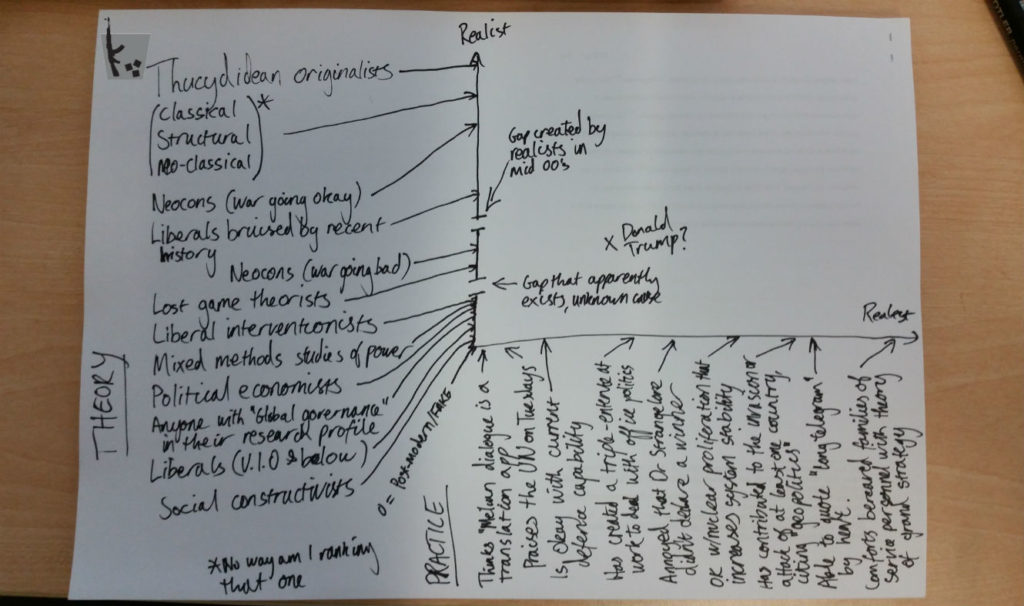 Realist
Thucydidean originalists
(Classical
Structural
neo-classical)*
Gap created by
realists in
mid 00's
Neocons (war going okay)
Liberals bruised by recent
history
Donald
x Trump?
Neocons (war going bad)
Gap that apparently
exists, unknown cause
Lost game theorists
Liberal interventionists
Realest
Mixed methods studies of power
Political economists
Anyone with "Global governance"
in their research profile
Liberals (V.1.0 & below)
Social constructivists
THEORY
*No way am I ranking
that one
0 = Post-modern/
PRACTICE
Thinks "Melian dialogue is a
translation app
Praises the UN on Tuesdays
Is okay with current
defence capability
Has created a triple-entente at
work to deal with office politics
Annoyed that Dr Strangelove
didn't declare a winner
OK w/nuclear proliferation that
increases system stability
Has contributed to the invasion or
attack of at least one country,
citing "geopolitics"
Able to quote "long telegram"
by heart.
Comforts bereaved families of
service personnel with theory
of grand strategy